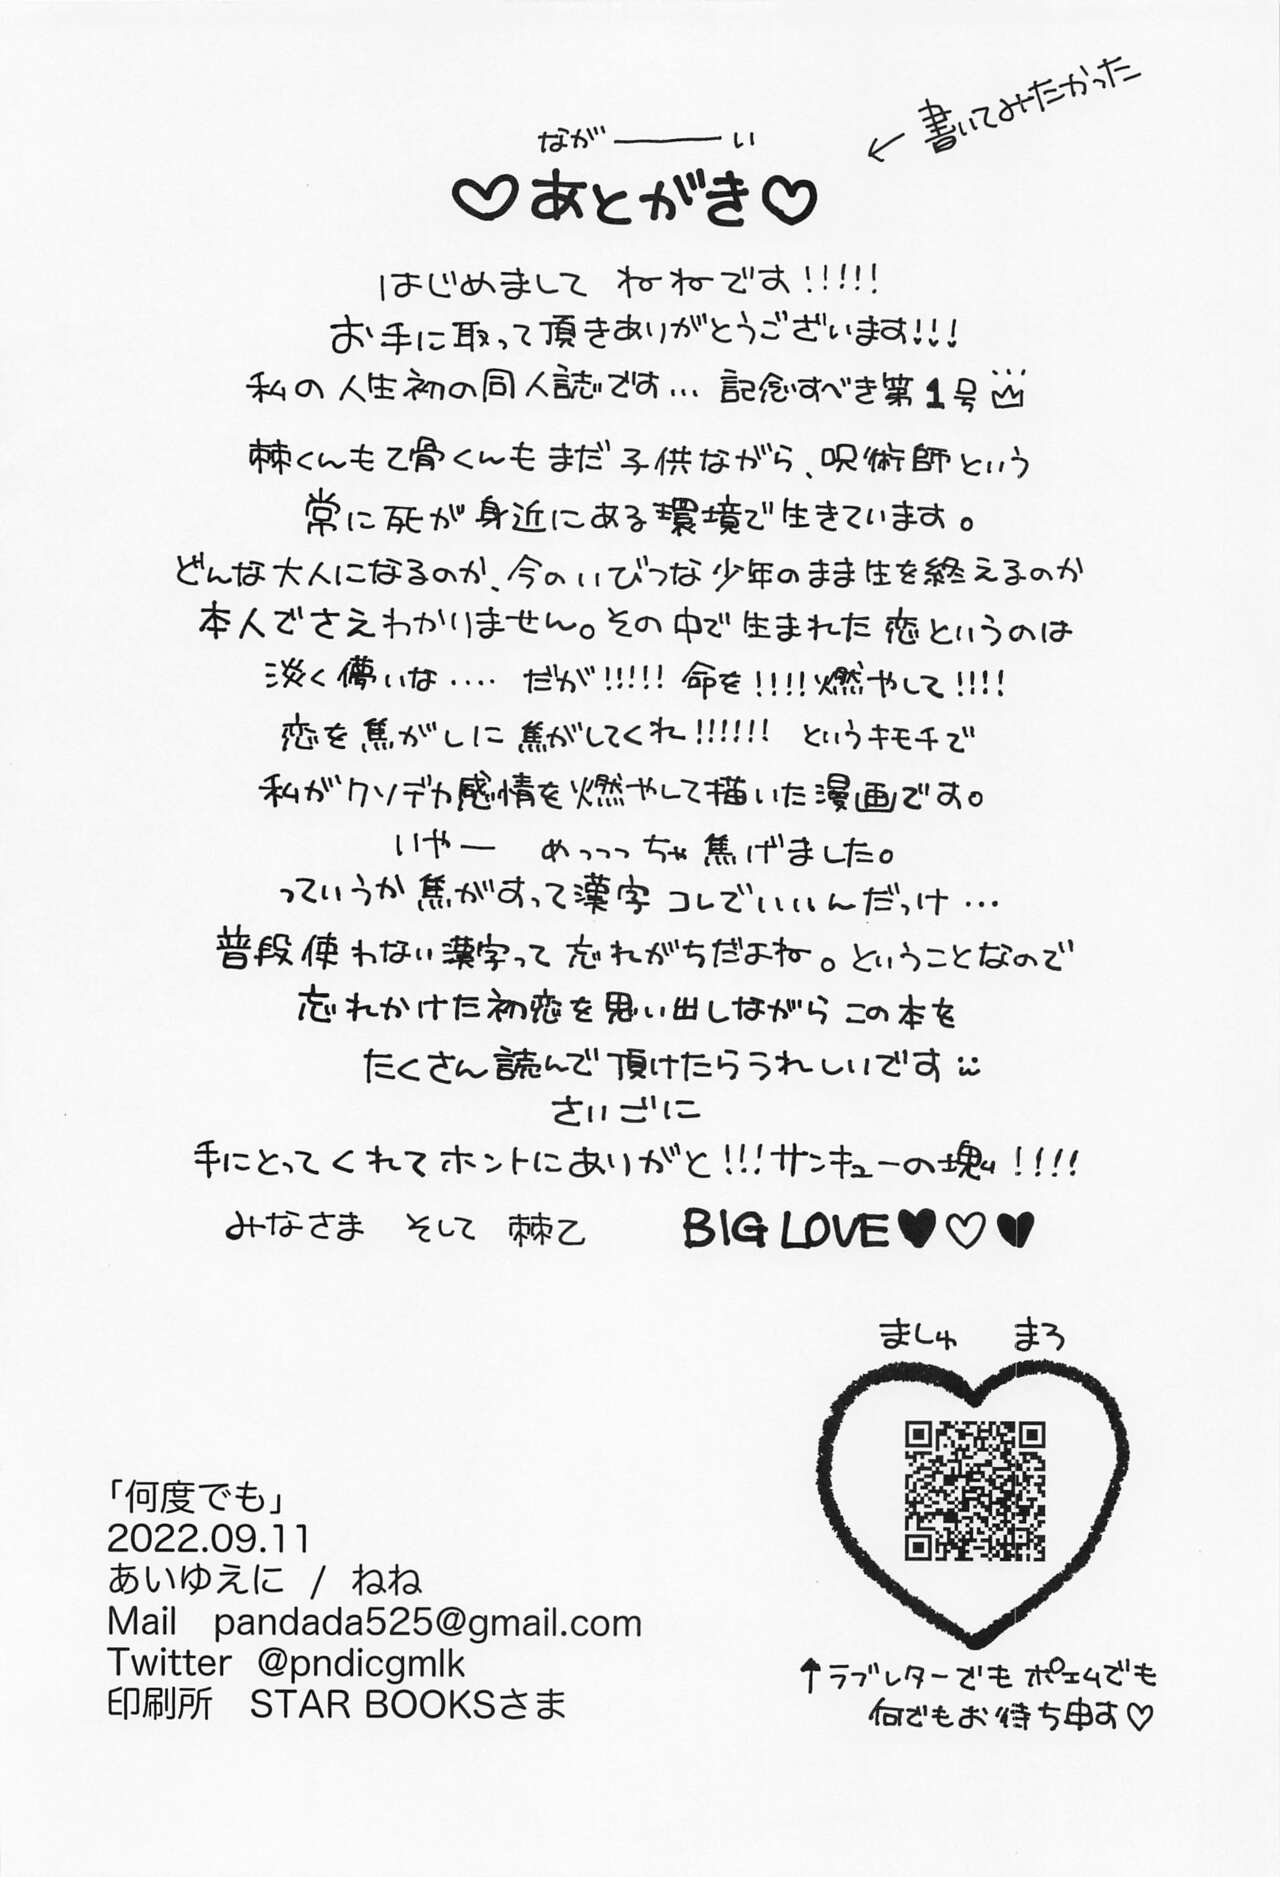 書いてみたかった
なが――い
♡あとがき♡
はじめまして ねねです!!!!!
お手に取って頂きありがとうございます!!!
私の人生初の同人誌です… 記念すべき第1号
棘くんも乙骨くんもまだ子供ながら、呪術師という
常に死が身近にある環境で生きています。
どんな大人になるのか、今のいびつな少年のまま生を終えるのか
本人でさえわかりません。その中で生まれた恋というのは
淡く儚いな‥‥ だが!!!!! 命を!!!!燃やして!!!!
恋を焦がしに焦がしてくれ!!!!!! というキモチで
私がクソデカ感情を燃やして描いた漫画です。
いやー めっっっちゃ焦げました。
っていうか焦がすって漢字コレでいいんだっけ…
普段使わない漢字って忘れがちだよね。ということなので
忘れかけた初恋を思い出しながらこの本を
たくさん読んで頂けたらうれしいです
さいごに
手にとってくれてホントにありがと!!!サンキューの塊!!!!
みなさま そして 棘乙 BIG LOVE♥♡♥
ましゅ まろ
「何度でも」
2022.09.11
あいゆえに / ねね
Mail pandada525@gmail.com
Twitter @pndicgmlk
印刷所 STAR BOOKSさま
↑ラブレターでもポエムでも
何でもお待ち申す♡